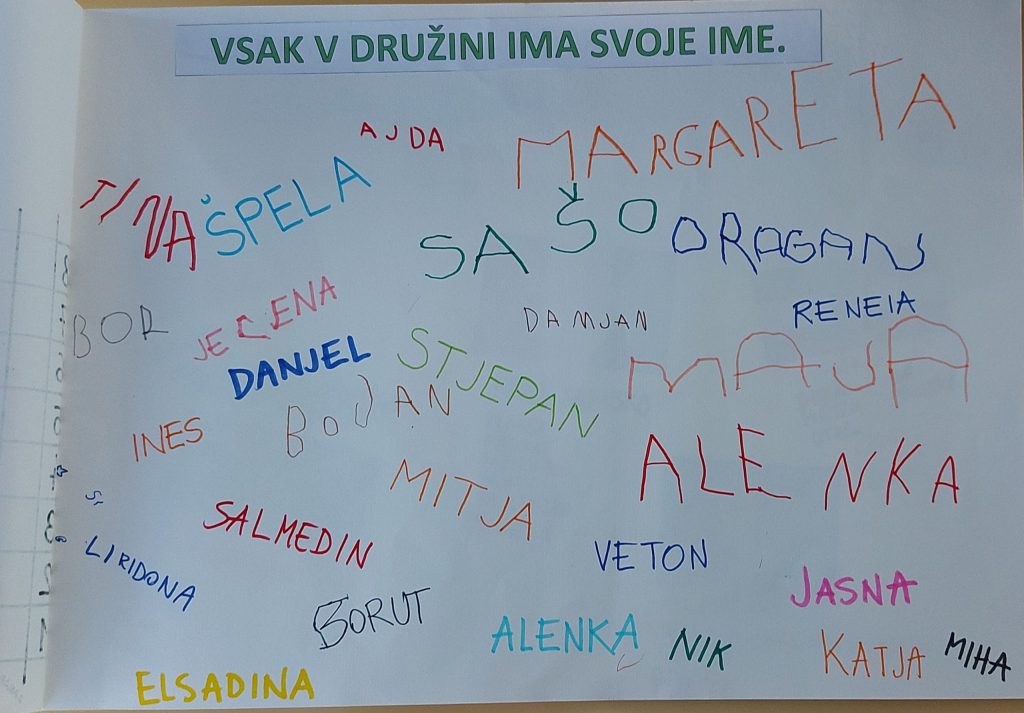 VSAK V DRUŽINI IMA SVOJE IME.
AJDA
MARGARETA
TINA
ŠPELA
SAŠO
DRAGAN
BOR
JELENA
DAMJAN
RENEIA
DANJEL
STJEPAN
MAJA
BOJAN
INES
ALENKA
MITJA
SALMEDIN
VETON
LIRIDONA
JASNA
BORUT
ALENKA
NIK
KATJA
MIHA
ELSADINA